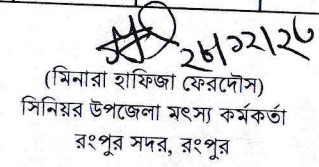 ২৮/১২/২৩
(মিনারা হাফিজা ফেরদৌস)
সিনিয়র উপজেলা মৎস্য কর্মকর্তা
রংপুর সদর, রংপুর